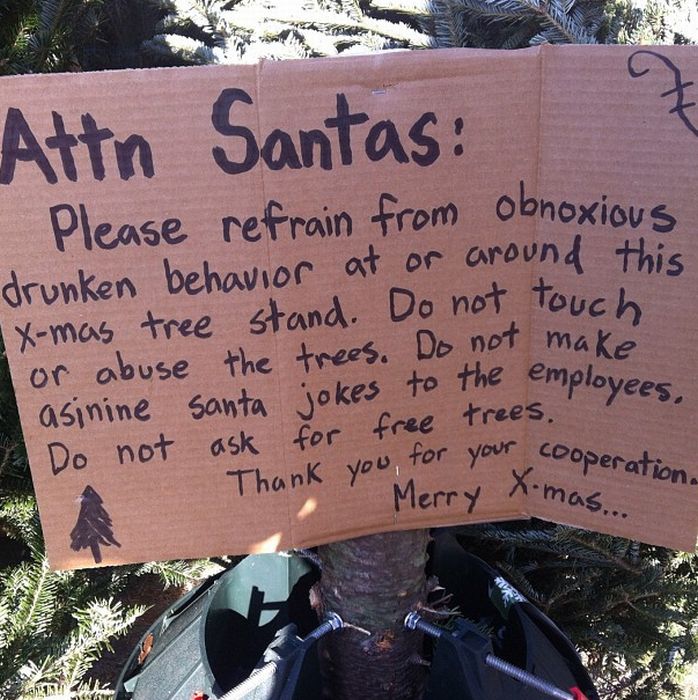 Attn Santas:
Please refrain from obnoxious
drunken behavior at or around this
x-mas tree stand. Do not touch
or abuse the trees. Do not make
asinine santa jokes to the employees.
Do not ask for free trees.
Thank you for your cooperation.
Merry X-mas...